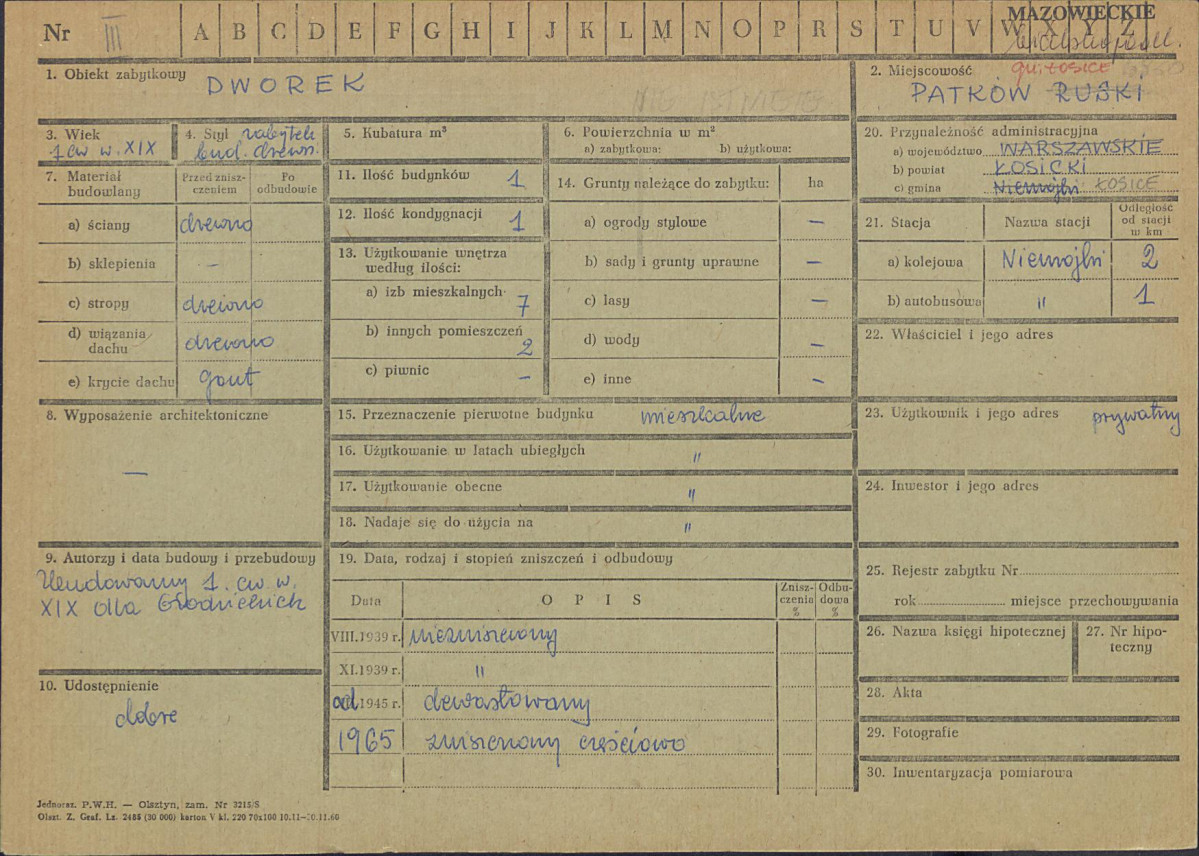 Nr III A B C D E F G H I J K L M N O P R S T U V W X Y Z
MAZOWIECKIE
gm. ŁOSICE
1. Obiekt zabytkowy DWOREK
NIE ISTNIEJE
2. Miejscowość
PATKÓW RUSKI
3. Wiek
1 ćw w. XIX
4. Styl
bud. drewn.
5. Kubatura m³
6. Powierzchnia w m²
a) zabytkowa: b) użytkowa:
7. Materiał budowlany
Przed zniszczeniem
Po odbudowie
a) ściany drewno
b) sklepienia –
c) stropy drewno
d) wiązania dachu drewno
e) krycie dachu gont
8. Wyposażenie architektoniczne
—
9. Autorzy i data budowy i przebudowy
1. ćw w.
XIX dla
10. Udostępnienie
dobre
11. Ilość budynków 1
12. Ilość kondygnacji 1
13. Użytkowanie wnętrza
według ilości:
a) izb mieszkalnych 7
b) innych pomieszczeń 2
c) piwnic –
14. Grunty należące do zabytku: ha
a) ogrody stylowe –
b) sady i grunty uprawne –
c) lasy –
d) wody –
e) inne –
15. Przeznaczenie pierwotne budynku mieszkalne
16. Użytkowanie w latach ubiegłych "
17. Użytkowanie obecne "
18. Nadaje się do użycia na "
19. Data, rodzaj i stopień zniszczeń i odbudowy
Data O P I S Zniszczenia % Odbudowa %
VIII.1939 r. niezniszczony
XI.1939 r. "
od 1945 r. dewastowany
1965 zniszczony częściowo
20. Przynależność administracyjna
a) województwo WARSZAWSKIE
b) powiat ŁOSICKI
c) gmina Niemojki ŁOSICE
21. Stacja Nazwa stacji Odległość od stacji w km
a) kolejowa Niemojki 2
b) autobusowa " 1
22. Właściciel i jego adres
23. Użytkownik i jego adres prywatny
24. Inwestor i jego adres
25. Rejestr zabytku Nr
rok miejsce przechowywania
26. Nazwa księgi hipotecznej
27. Nr hipoteczny
28. Akta
29. Fotografie
30. Inwentaryzacja pomiarowa
Jednoraz. P.W.H. — Olsztyn, zam. Nr 3215/S
Olszt. Z. Graf. Lz. 2485 (30 000) karton V kl. 220 70x100 10.11–10.11.60